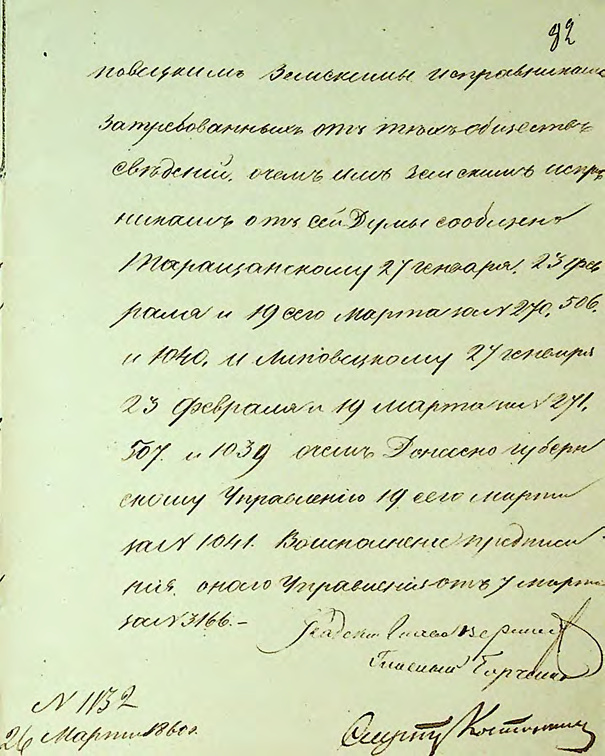 92
повецкимъ Земскимы исправниками
затребованныхъ отъ тѣхъ обществъ
свѣдений, очемъ имъ земскимъ испра
никамъ отъ сей Думы сообщено
Таращанскому 27 генваря, 23 фев
раля и 19 сего Марта за N 270, 506,
и 1040, и Липовецкому 27 генваря
23 февраля и 19 марта за N 271,
507 и 1039 очемъ Донесено губерн
скому Управлению 19 сего марта
за N 1041. Воисполнение предписа
ния онаго Управления отъ 7 марта
за N 3166.-
Гласный
N 1132
26 Марта 1860г.